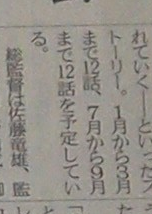 れていく―といったス
トーリー。1月から3月
まで12話、7月から9月
まで12話を予定してい
る。
総監督は佐藤竜雄、監